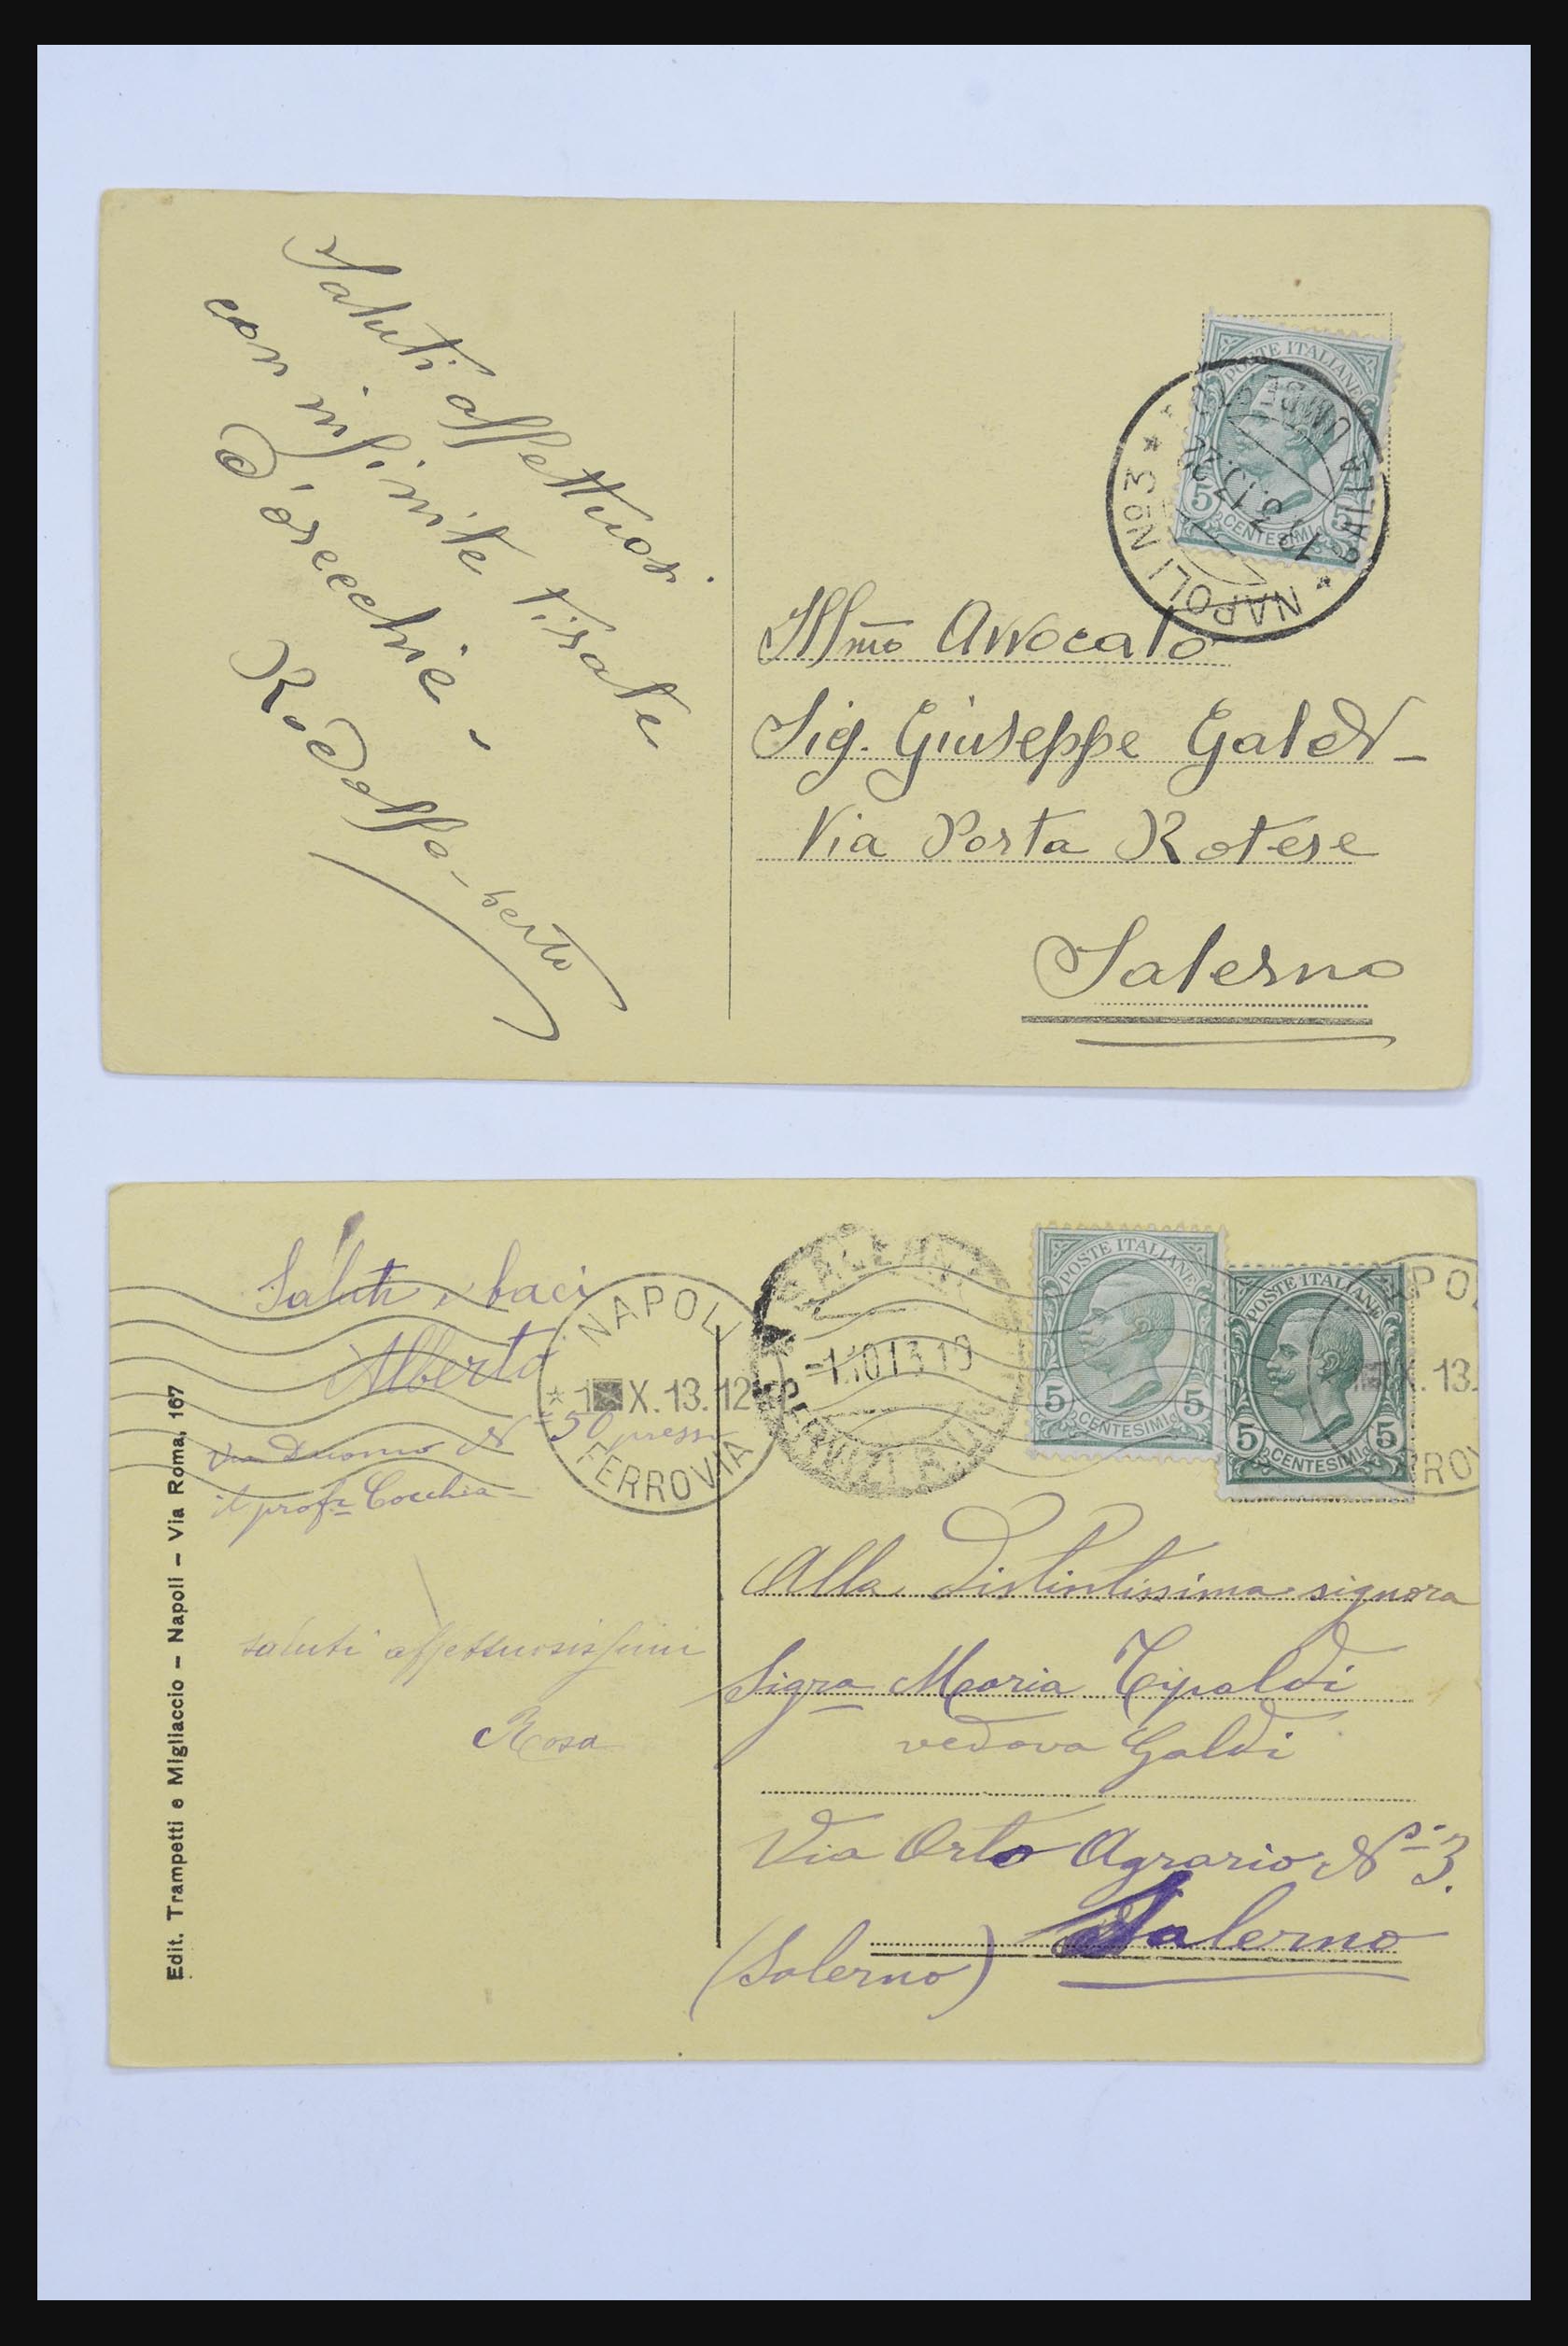 Saluti affettuosi
con infinite tirate
d'orecchie -
Rodolfo - berto
POSTE ITALIANE
5 5
CENTESIMI
NAPOLI No 3
Illmo Avvocato
Sig. Giuseppe Galdi -
Via Porta Rotese
Salerno
Saluti e baci
Alberto
Via Duomo N° 50 presso
il profr Cocchia
saluti affettuosissimi
Rosa
Edit. Trampetti e Migliaccio - Napoli - Via Roma, 167
NAPOLI
* 1 X. 13. 12
FERROVIA
SALERNO
-1.10.13.19
POSTE ITALIANE
5 5
CENTESIMI
POSTE ITALIANE
5 5
CENTESIMI
Alla Distintissima signora
Sigra Maria Tipaldi
vedova Galdi
Via Orto Agrario No 3.
Salerno
(Salerno)